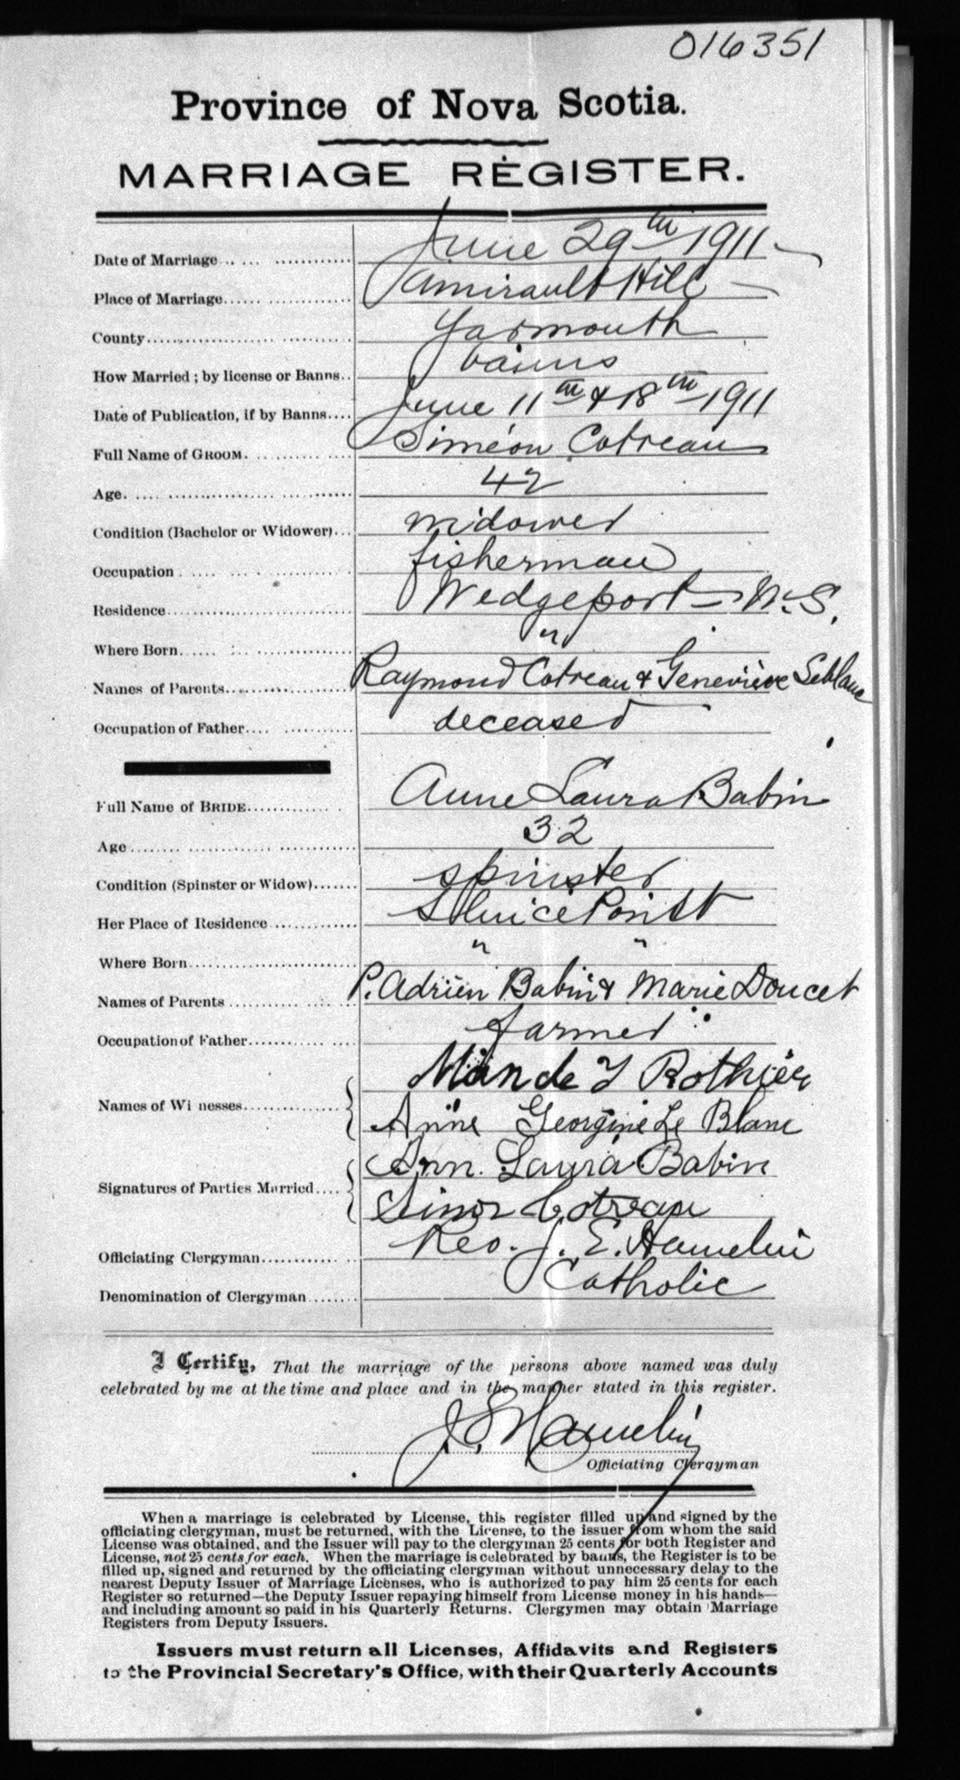 016351
Province of Nova Scotia.
MARRIAGE REGISTER.
Date of Marriage June 29th 1911
Place of Marriage Amirault Hill
County Yarmouth
How Married; by license or Banns banns
Date of Publication, if by Banns June 11th & 18th 1911
Full Name of GROOM. Siméon Cotreau
Age. 42
Condition (Bachelor or Widower) widower
Occupation fisherman
Residence Wedgeport N.S.
Where Born. "
Names of Parents. Raymond Cotreau & Geneviève Leblanc
Occupation of Father. deceased
Full Name of BRIDE Anne Laura Babin
Age 32
Condition (Spinster or Widow) spinster
Her Place of Residence Sluice Point
Where Born " "
Names of Parents P. Adrien Babin & Marie Doucet
Occupation of Father farmer
Names of Wi nesses Rothier
Anne Georgine Le Blanc
Signatures of Parties Married Ann. Laura Babin
Simon Cotreau
Officiating Clergyman Rev. J. E. Hamelin
Denomination of Clergyman Catholic
I Certify, That the marriage of the persons above named was duly
celebrated by me at the time and place and in the manner stated in this register.
J. E. Hamelin
Officiating Clergyman
When a marriage is celebrated by License, this register filled up and signed by the
officiating clergyman, must be returned, with the License, to the issuer from whom the said
License was obtained, and the Issuer will pay to the clergyman 25 cents for both Register and
License, not 25 cents for each. When the marriage is celebrated by banns, the Register is to be
filled up, signed and returned by the officiating clergyman without unnecessary delay to the
nearest Deputy Issuer of Marriage Licenses, who is authorized to pay him 25 cents for each
Register so returned—the Deputy Issuer repaying himself from License money in his hands—
and including amount so paid in his Quarterly Returns. Clergymen may obtain Marriage
Registers from Deputy Issuers.
Issuers must return all Licenses, Affidavits and Registers
to the Provincial Secretary's Office, with their Quarterly Accounts